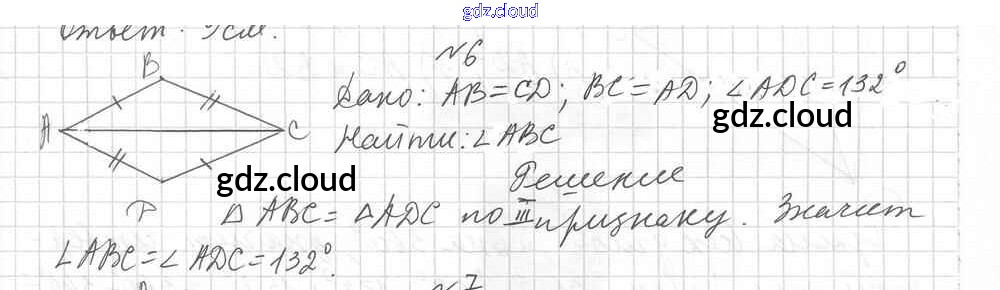 gdz.cloud
Ответ: 9см.
№6
B
A
C
Дано: AB=CD; BC=AD; ∠ADC=132°
gdz.cloud
Найти: ∠ABC
Решение
gdz.cloud
△ABC=△ADC по III признаку. Значит
∠ABC=∠ADC=132°.
№7